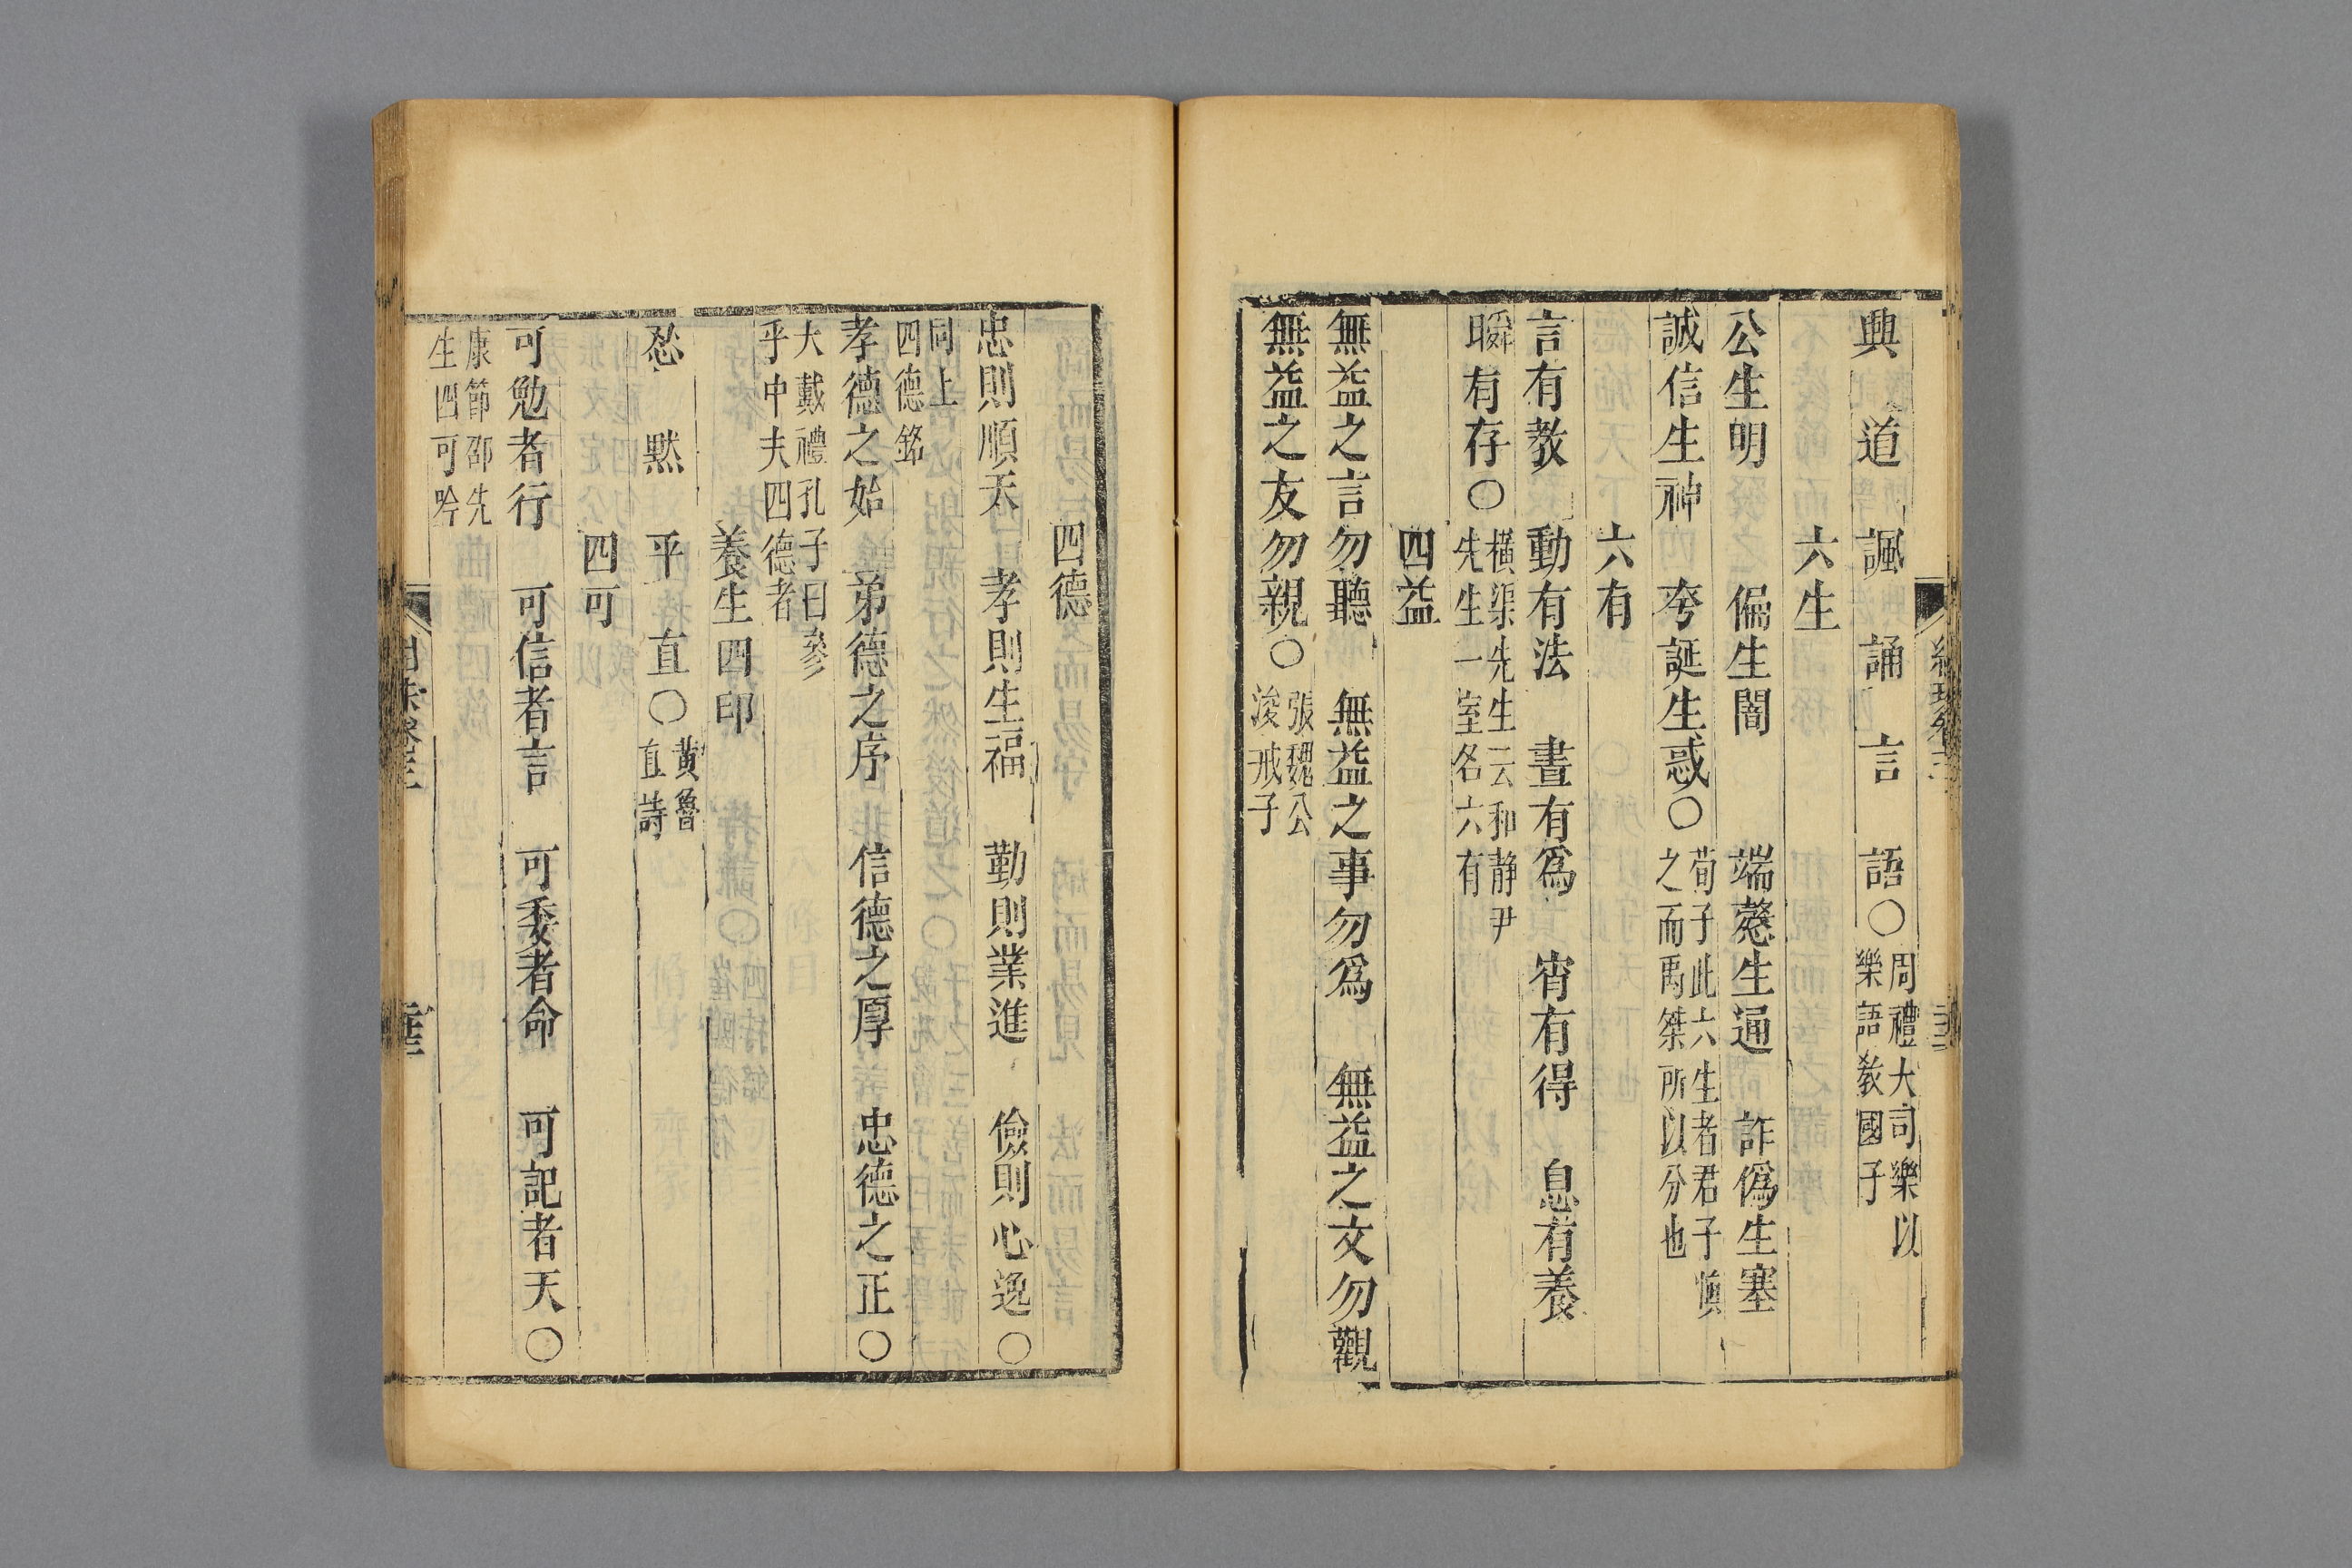 興 道 諷 誦 言 語〇周禮大司樂以
樂語教國子
六生
公生明 偏生闇 端愨生通 詐僞生塞
誠信生神 夸誕生惑〇荀子此六生者君子慎
之而禹桀所以分也
六有
言有教 動有法 晝有爲 宵有得 息有養
瞬有存〇橫渠先生云和静尹
先生一室名六有
四益
無益之言勿聽 無益之事勿爲 無益之文勿觀
無益之友勿親〇張魏公
浚戒子
四德
忠則順天 孝則生福 勤則業進 儉則心逸〇
同上
四德銘
孝德之始 弟德之序 信德之厚 忠德之正〇
大戴禮孔子曰參
乎中夫四德者
養生四印
忍 默 平 直〇黄魯
直詩
四可
可勉者行 可信者言 可委者命 可記者天〇
康節邵先
生四可吟